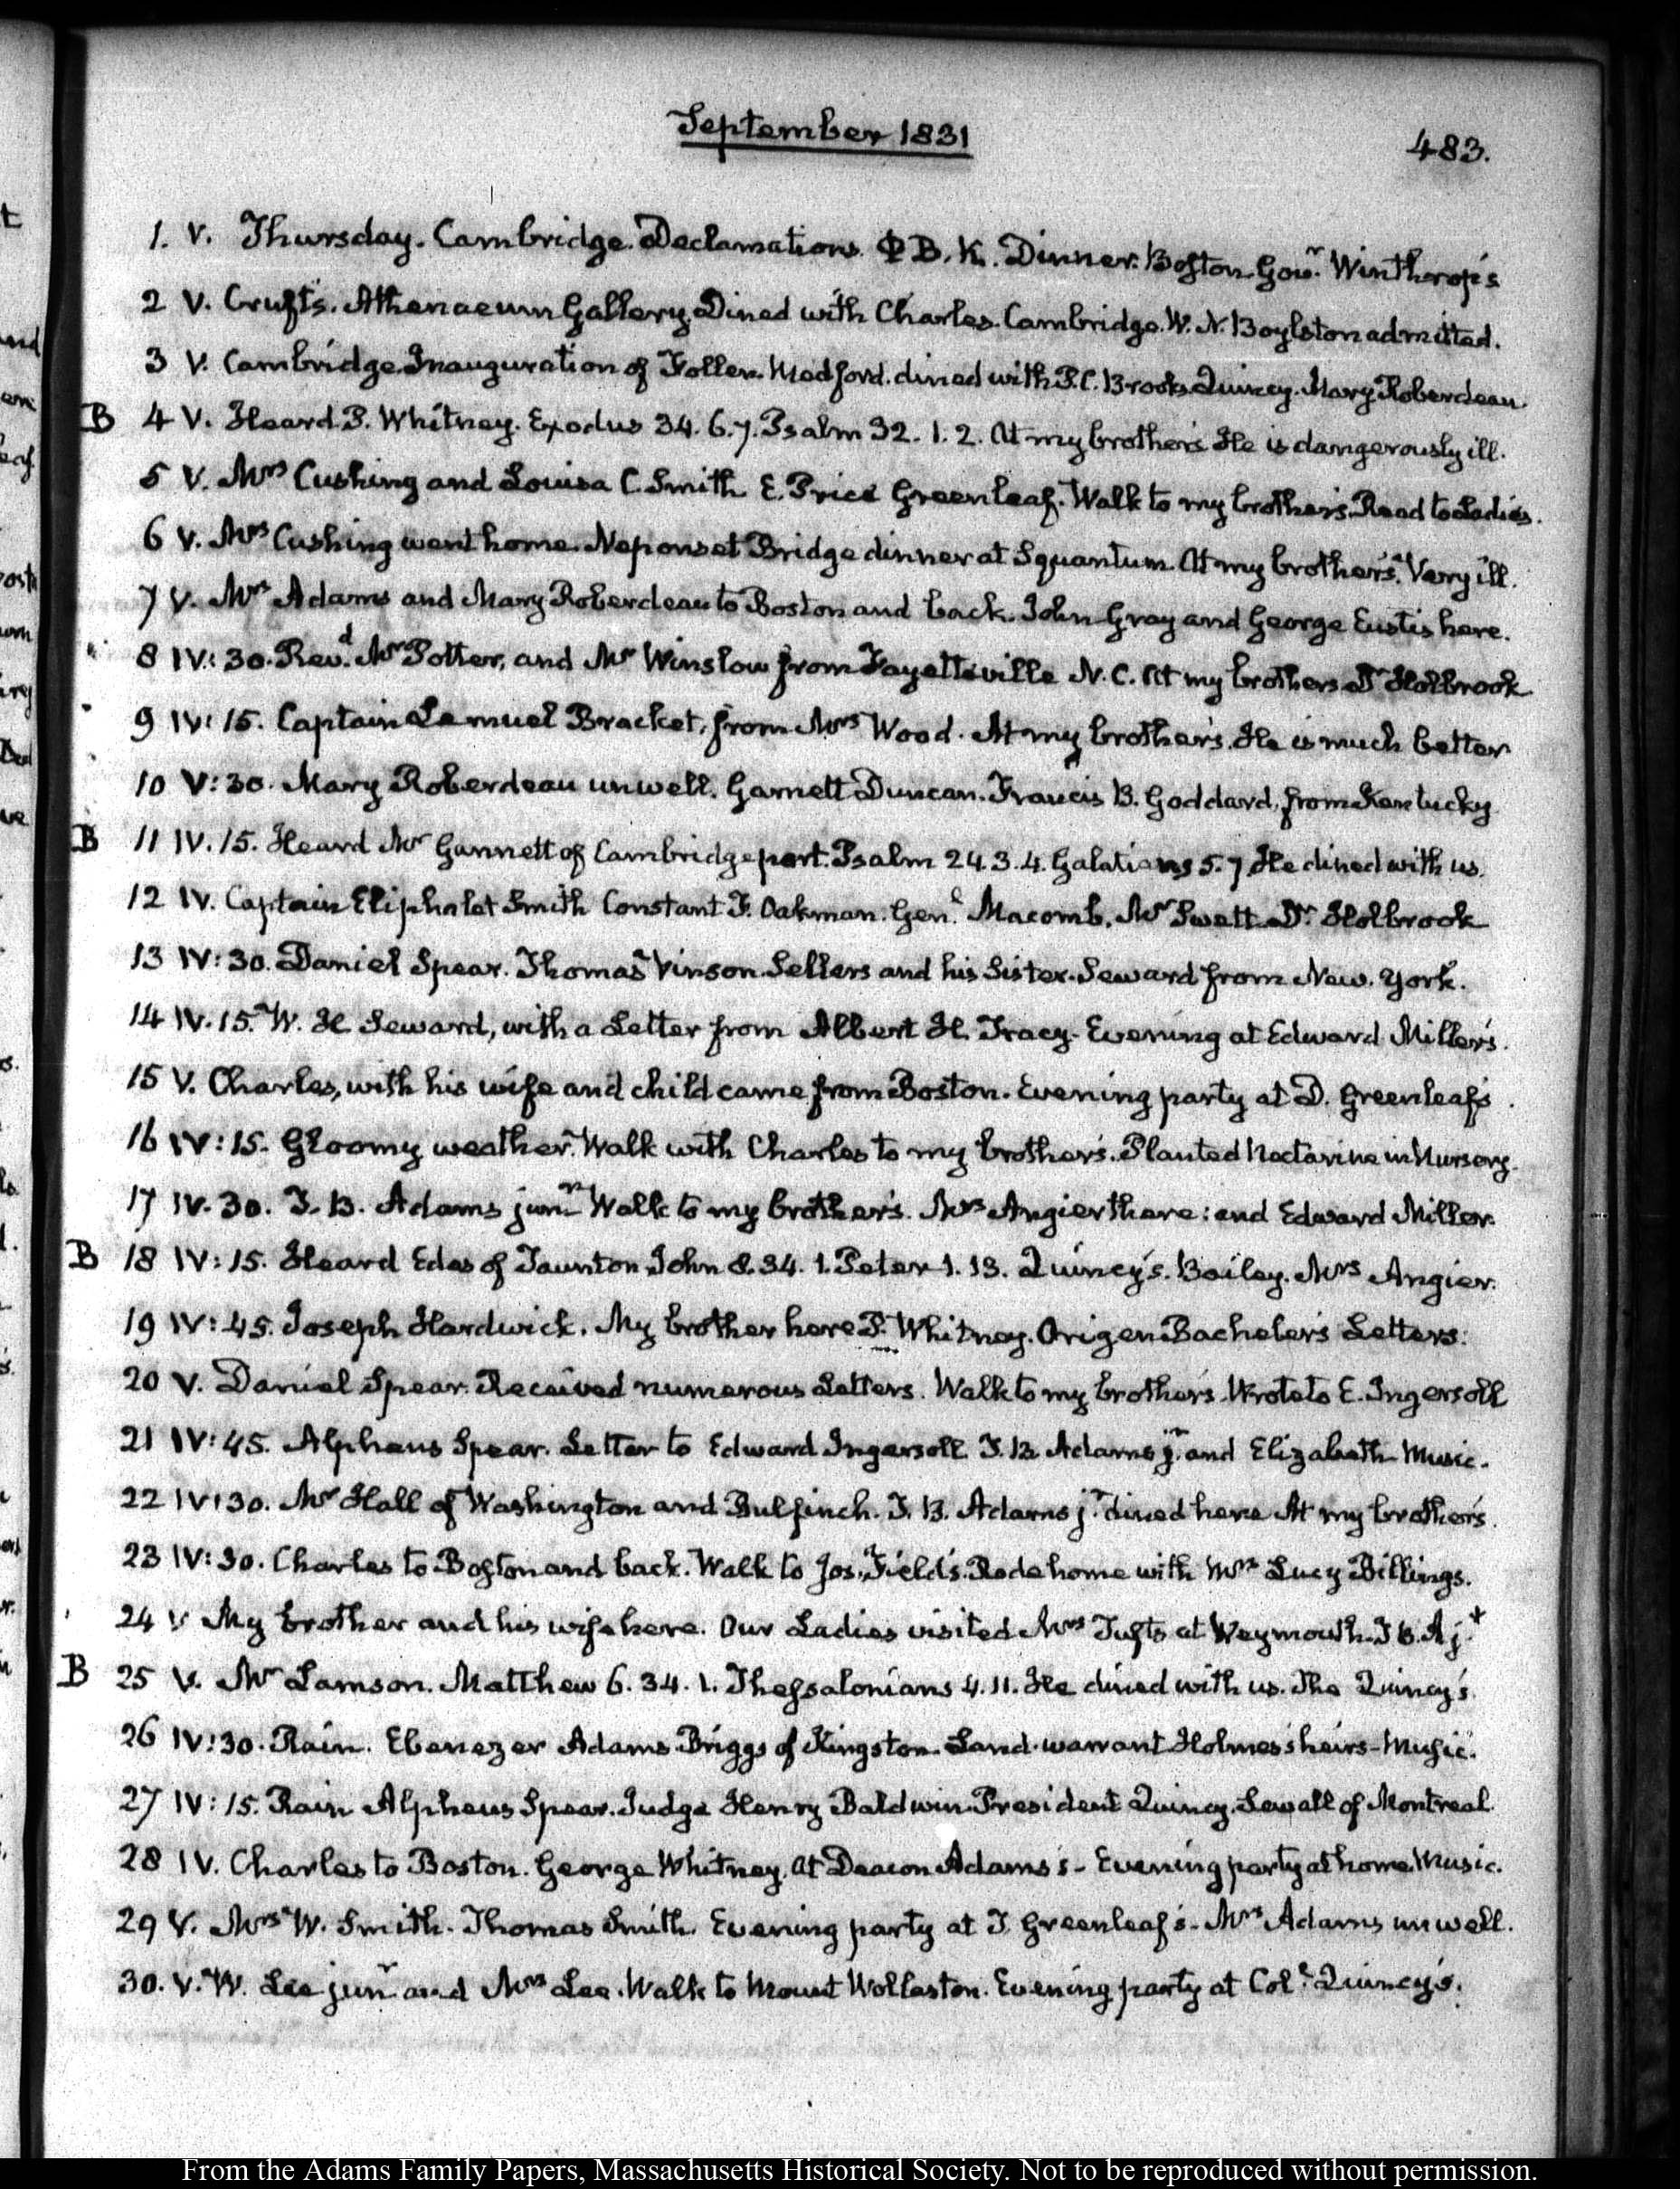 September 1831
483.
1. V. Thursday. Cambridge. Declamations. Φ B. K. Dinner. Boston. Govr. Winthrop's
2 V. Cruft's. Athenaeum Gallery. Dined with Charles. Cambridge. W. N. Boylston admitted.
3 V. Cambridge. Inauguration of Follen. Medford. dined with P. C. Brooks. Quincy. Mary Roberdeau.
B 4 V. Heard P. Whitney. Exodus 34. 6. 7. Psalm 32. 1. 2. At my brother's. He is dangerously ill.
5 V. Mrs Cushing and Louisa C. Smith. E. Price Greenleaf. Walk to my brother's. Read to Ladies.
6 V. Mrs Cushing went home. Neponset Bridge dinner at Squantum. At my brother's. Very ill.
7 V. Mrs Adams and Mary Roberdeau to Boston and back. John Gray and George Eustis here.
8 IV: 30. Revd. Mr Potter, and Mr Winslow from Fayetteville N. C. At my brothers Dr Holbrook
9 IV: 15. Captain Lemuel Bracket, from Mrs Wood. At my brother's. He is much better
10 V: 30. Mary Roberdeau unwell. Garnett Duncan. Francis B. Goddard, from Kentucky
B 11 IV. 15. Heard Mr Gannett of Cambridgeport. Psalm 24. 3. 4. Galatians 5. 7 He dined with us.
12 IV. Captain Eliphalet Smith Constant F. Oakman. Genl. Macomb. Mr Swett. Dr. Holbrook
13 IV: 30. Daniel Spear. Thomas Vinson. Sellers and his Sister. Seward from New. York.
14 IV. 15. W. H Seward, with a Letter from Albert H. Tracy. Evening at Edward Miller's.
15 V. Charles, with his wife and child came from Boston. Evening party at D. Greenleaf's.
16 IV: 15. Gloomy weather. Walk with Charles to my brother's. Planted Nectarine in Nursery.
17 IV. 30. T. B. Adams junr Walk to my brother's. Mrs Angier there: and Edward Miller.
B 18 IV: 15. Heard Edes of Taunton. John 8. 34. 1. Peter 1. 13. Quincy's. Bailey. Mrs Angier.
19 IV: 45. Joseph Hardwick. My brother here P. Whitney. Origen Bacheler's Letters.
20 V. Daniel Spear. Received numerous Letters. Walk to my brother's. Wrote to E. Ingersoll
21 IV: 45. Alpheus Spear. Letter to Edward Ingersoll. T. B. Adams jr. and Elizabeth. Music.
22 IV: 30. Mr Hall of Washington and Bulfinch. T. B. Adams jr. dined here At my brother's.
23 IV: 30. Charles to Boston and back. Walk to Jos. Field's. Rode home with Mrs Lucy Billings.
24 V My brother and his wife here. Our Ladies visited Mrs Tufts at Weymouth. T B. A j. +
B 25 V. Mr Lamson. Matthew 6. 34. 1. Thessalonians 4. 11. He dined with us. The Quincy's
26 IV: 30. Rain. Ebenezer Adams. Briggs of Kingston. Land. warrant Holmes's heirs - Music.
27 IV: 15. Rain Alpheus Spear. Judge Henry Baldwin. President Quincy. Sewall of Montreal.
28 IV. Charles to Boston. George Whitney. At Deacon Adams's - Evening party at home. Music.
29 V. Mrs W. Smith. Thomas Smith. Evening party at T. Greenleaf's - Mrs Adams unwell.
30. V. W. Lee junr and Mrs Lee. Walk to Mount Wollaston. Evening party at Coll. Quincy's.
From the Adams Family Papers, Massachusetts Historical Society. Not to be reproduced without permission.